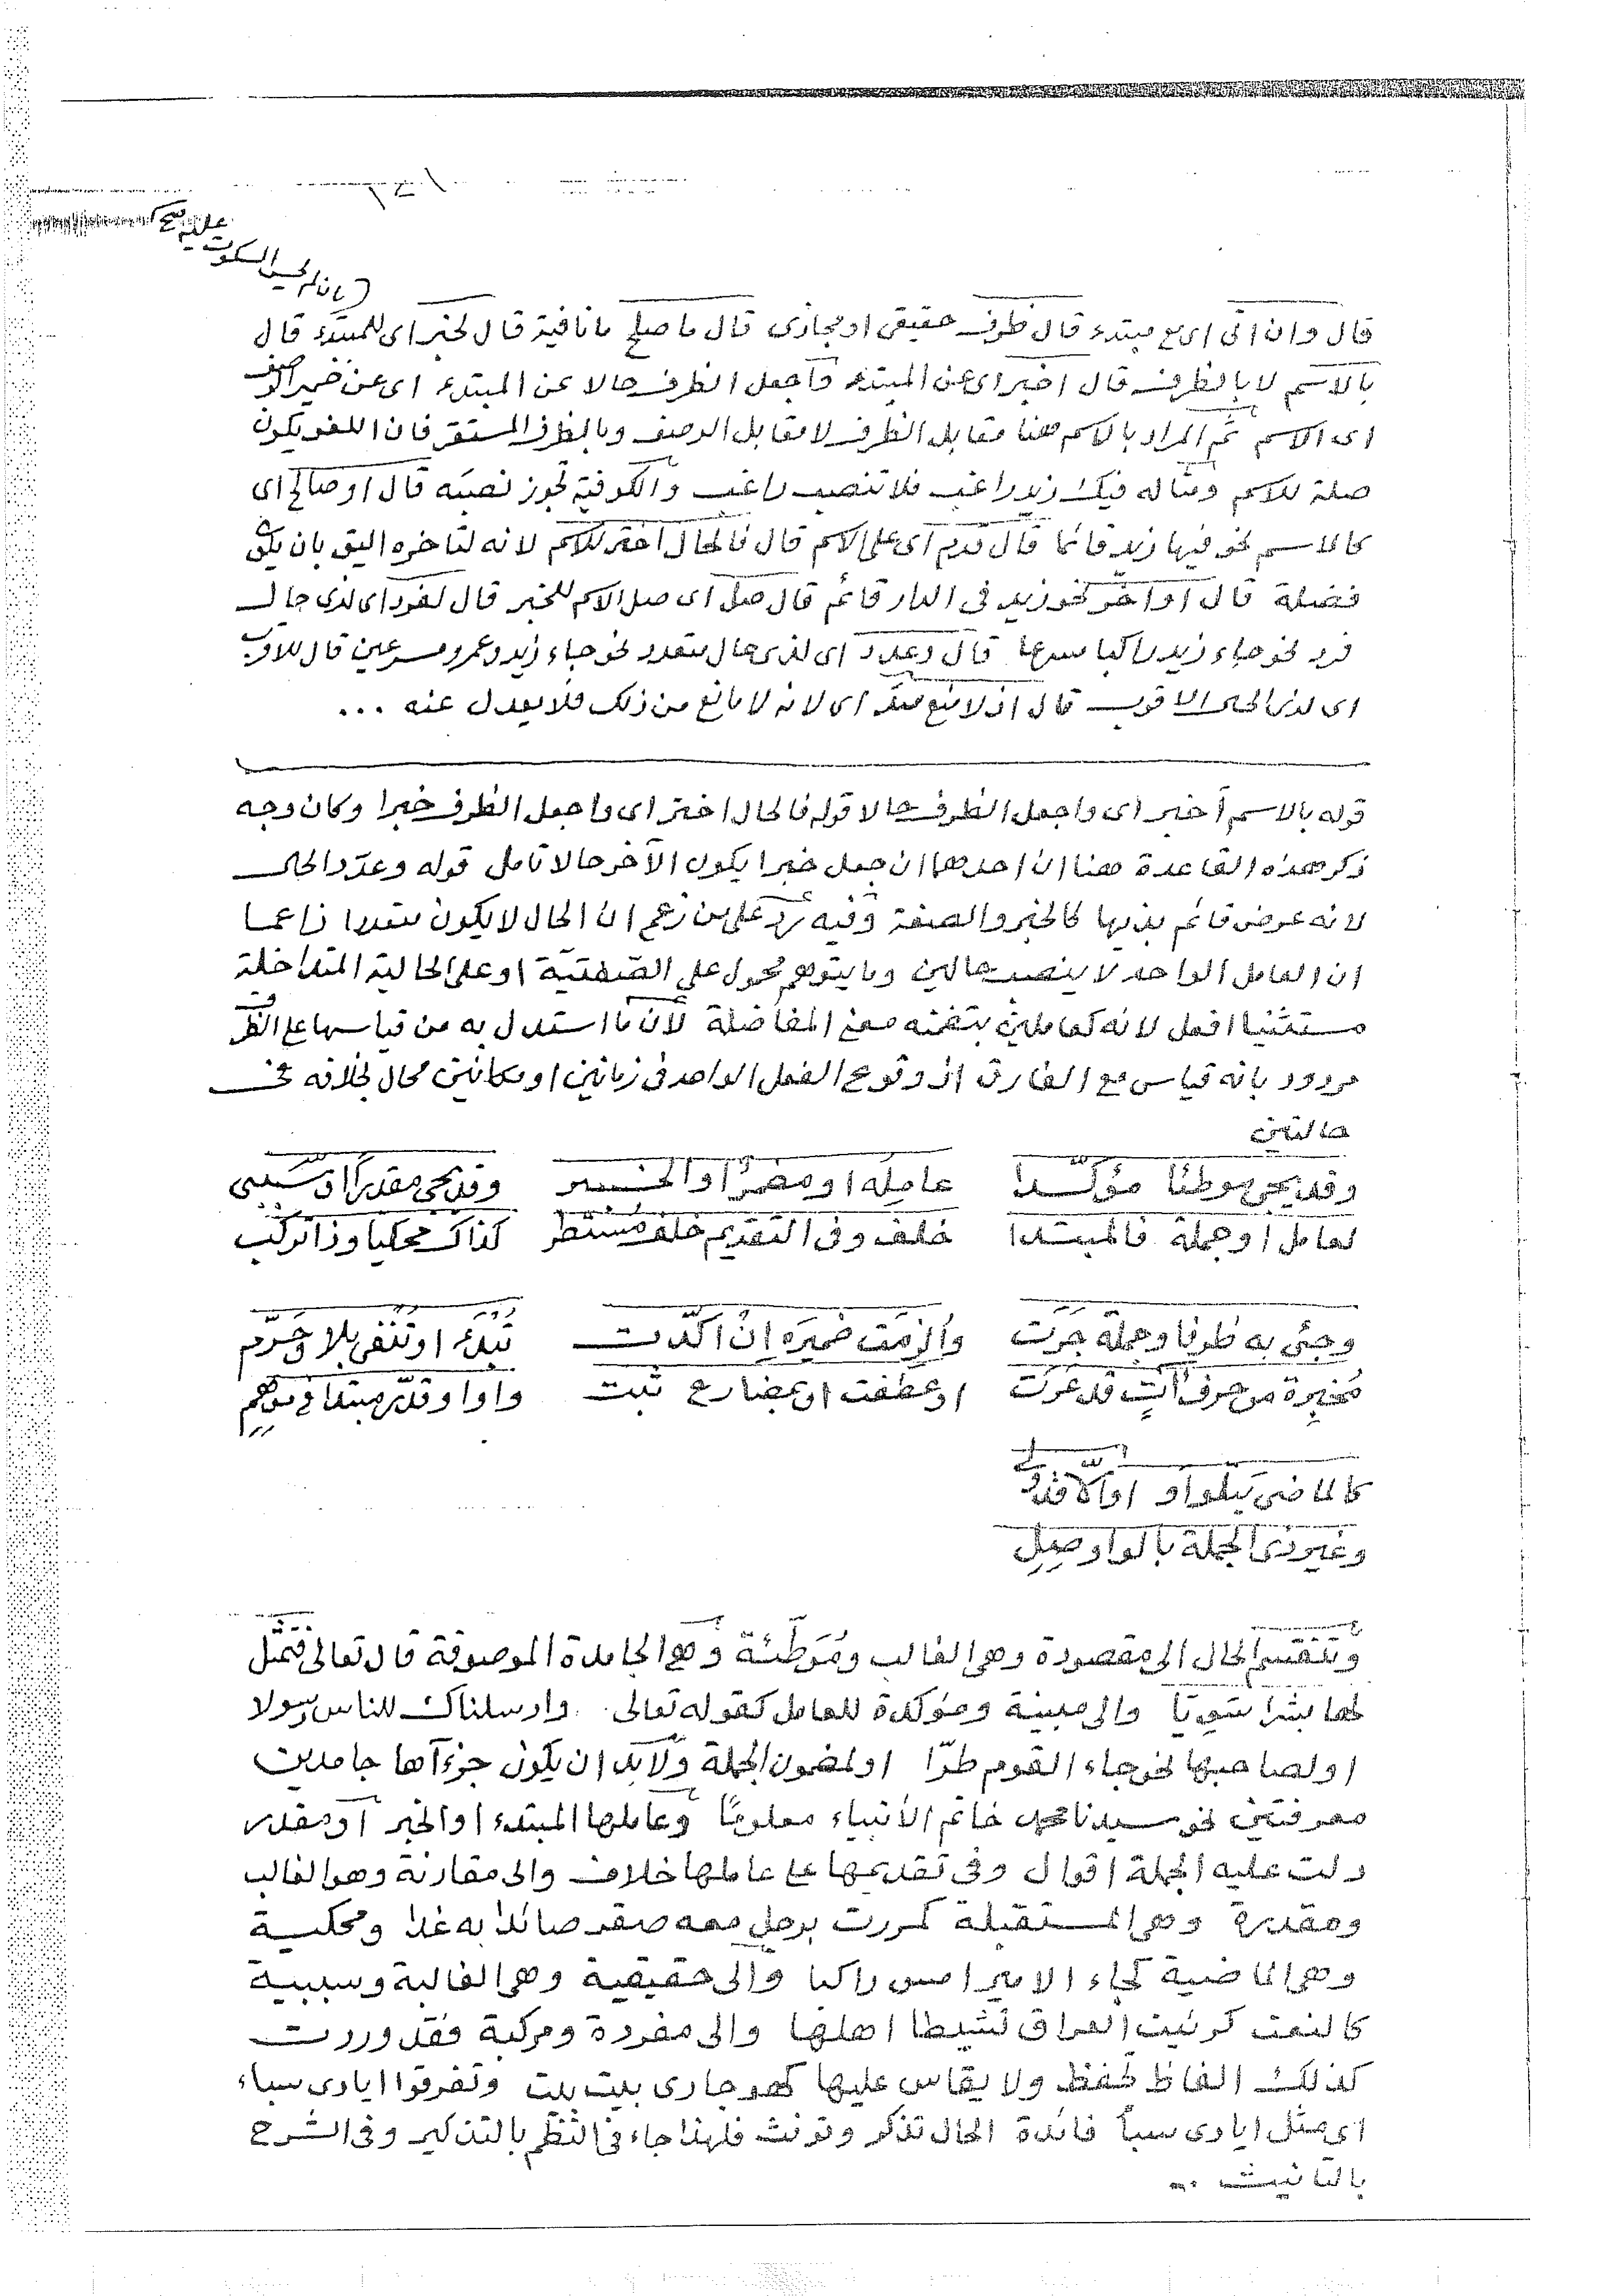 بان لم يحسن السكوت عليه صح
قال وان اتى اى مع مبتدء قال ظرف حقيقى او مجازى قال ما صلح ما نافية قال لخبر اى للمبتدء قال
بالاسم لا بالظرف قال اخبر اى عن المبتدء واجعل الظرف حالا عن المبتدء اى عن ضمير الوصف
اى الاسم ثم المراد بالاسم هنا مقابل الظرف لا مقابل الوصف وبالظرف المستقر فان اللغو يكون
صلة للاسم ومثاله فيك زيد راغب فلا تنصب راغب والكوفية تجوز نصبه قال او صالح اى
كالاسم نحو فيها زيد قائما قال قدم اى على الاسم قال فالحال اختر للاسم لانه لتاخره اليق بان يكون
فضلة قال او اخّر نحو زيد فى الدار قائم قال صل اى صل الاسم للخبر قال لفرد اى لذى حال
فرد نحو جاء زيد راكبا مسرعا قال وعدد اى لذى حال متعدد نحو جاء زيد وعمرو مسرعين قال للاقرب
اى لذى الحال الاقرب قال اذ لا منع منه اى لانه لا مانع من ذلك فلا يعدل عنه ...
قوله بالاسم أخبر اى واجعل الظرف حالا قوله فالحال اختر اى واجعل الظرف خبرا وكان وجه
ذكر هذه القاعدة هنا ان احدهما ان جعل خبرا يكون الآخر حالا تامل قوله وعدّد الحال
لانه عرض قائم بذيها كالخبر والصفة وفيه ردّ على من زعم ان الحال لا يكون متعددا زاعما
ان العامل الواحد لا ينصب حالين وما يتوهم محمول على الصفتيّة او على الحالية المتداخلة
مستثنيا افعل لانه كعاملين بتضمنه معنى المفاضلة لان ما استدل به من قياسها على الظرف
مردود بانه قياس مع الفارق اذ وقوع الفعل الواحد فى زمانين او مكانين محال بخلافه فى
حالتين
وقد يجى موطئا مؤكّدا عامله او مضمرًا والخبر وقد يجى مقدرًا او سببى
لعامل او جملة فالمبتدا خلف وفى التقديم خلف مستطر كذاك محكيا وذا تركّب
وجئ به ظرفا وجملة جرت وألزمت ضميره إن اكّدت تبدء او تنفى بلا وحرّم
مُخبِرة من حرف آت قد عرت او عطفت او بمضارع ثبت واوا وقدّر مبتدا فى موهم
كالماضى يتلو او او الّا
وغير ذى الجملة بالواو صِلِ
وتنقسم الحال الى مقصودة وهى الغالب ومُوَطِّئة وهى الجامدة الموصوفة قال تعالى فتمثّل
لها بشرا سويّا والى مبينة ومؤكدة للعامل كقوله تعالى وارسلناك للناس رسولا
او لصاحبها نحو جاء القوم طرّا او لمضمون الجملة ولابد ان يكون جزءآها جامدين
معرفتين نحو سيدنا محمد خاتم الأنبياء معلومًا وعاملها المبتدء او الخبر او مقدر
دلت عليه الجملة اقوال وفى تقديمها على عاملها خلاف والى مقارنة وهو الغالب
ومقدرة وهى المستقبلة كمررت برجل معه صقر صائدا به غدا ومحكية
وهى الماضية كجاء الامير امس راكبا والى حقيقية وهى الغالبة وسببية
كالنعت كرئيت العراق نشيطا اهلها والى مفردة ومركبة فقد وردت
كذلك الفاظ تحفظ ولا يقاس عليها كهو جارى بيت بيت وتفرقوا ايادى سباء
اى مثل ايادى سبأ فائدة الحال تذكر وتونث فلهذا جاء فى النظم بالتذكير وفى الشرح
بالتانيث